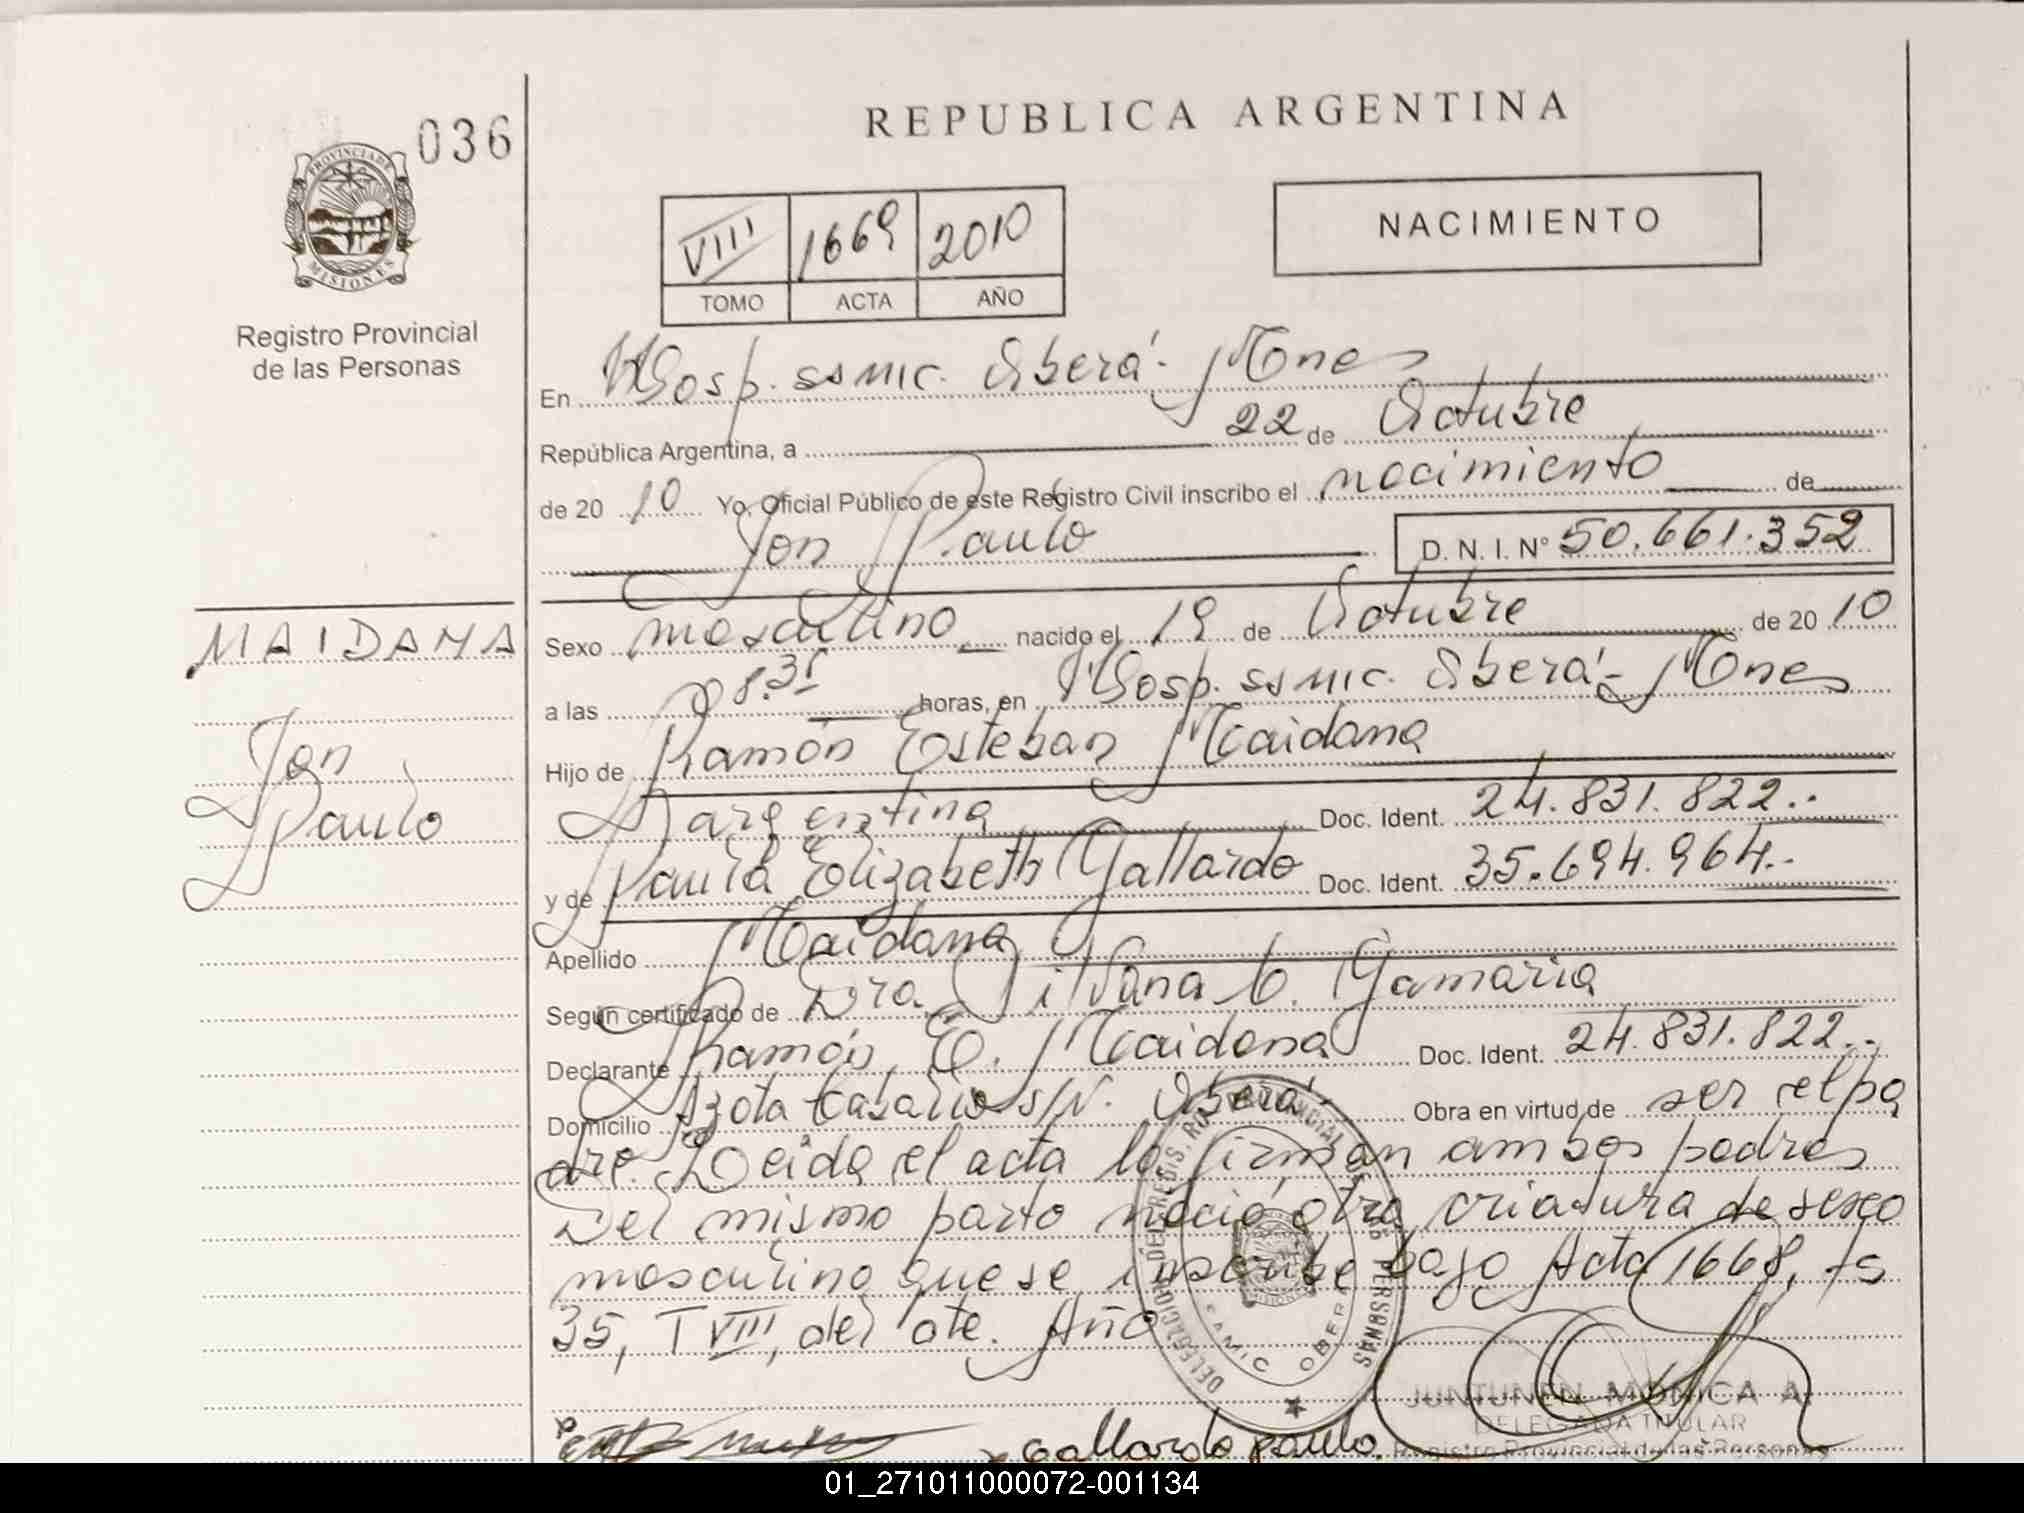 036
PROVINCIA DE
MISIONES
Registro Provincial
de las Personas
REPUBLICA ARGENTINA
VIII 1669 2010
TOMO ACTA AÑO
NACIMIENTO
En Hosp. ssmic. Oberá- Mnes
República Argentina, a 22 de Octubre
de 2010 Yo, Oficial Público de este Registro Civil inscribo el nacimiento de
Jon Paulo
D. N. I. N° 50.661.352
MAIDANA
Jon
Paulo
Sexo masculino nacido el 19 de Octubre de 2010
a las horas, en Hosp. ssmic. Oberá- Mnes
Hijo de Ramón Esteban Maidana
argentina Doc. Ident. 24.831.822..
y de Paula Elizabeth Gallardo Doc. Ident. 35.694.964..
Apellido Maidana
Según certificado de Dra. Silvana Gamarra
Declarante Ramón E. Maidana Doc. Ident. 24.831.822..
Domicilio s/N. Oberá Obra en virtud de ser el pa
dre. Leida el acta la firman ambos padres
Del mismo parto nació otra criatura de sexo
masculino que se inscribe bajo Acta 1668, fs
35, T VIII, del cte. Año
DELEGACION DEL REGIS. PROVINCIAL DE LAS PERSONAS
SAMIC OBERA
Gallardo paula.
JUNTUNEN MONICA A.
DELEGADA TITULAR
Registro Provincial de las Personas
01_271011000072-001134